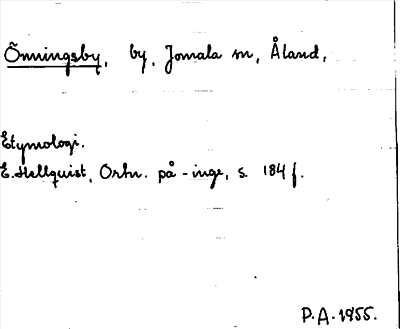 Önningsby, by, Jomala sn, Åland,
Etymologi.
E. Hellquist, Ortn. på -inge, s. 184 f.
P.A. 1955.